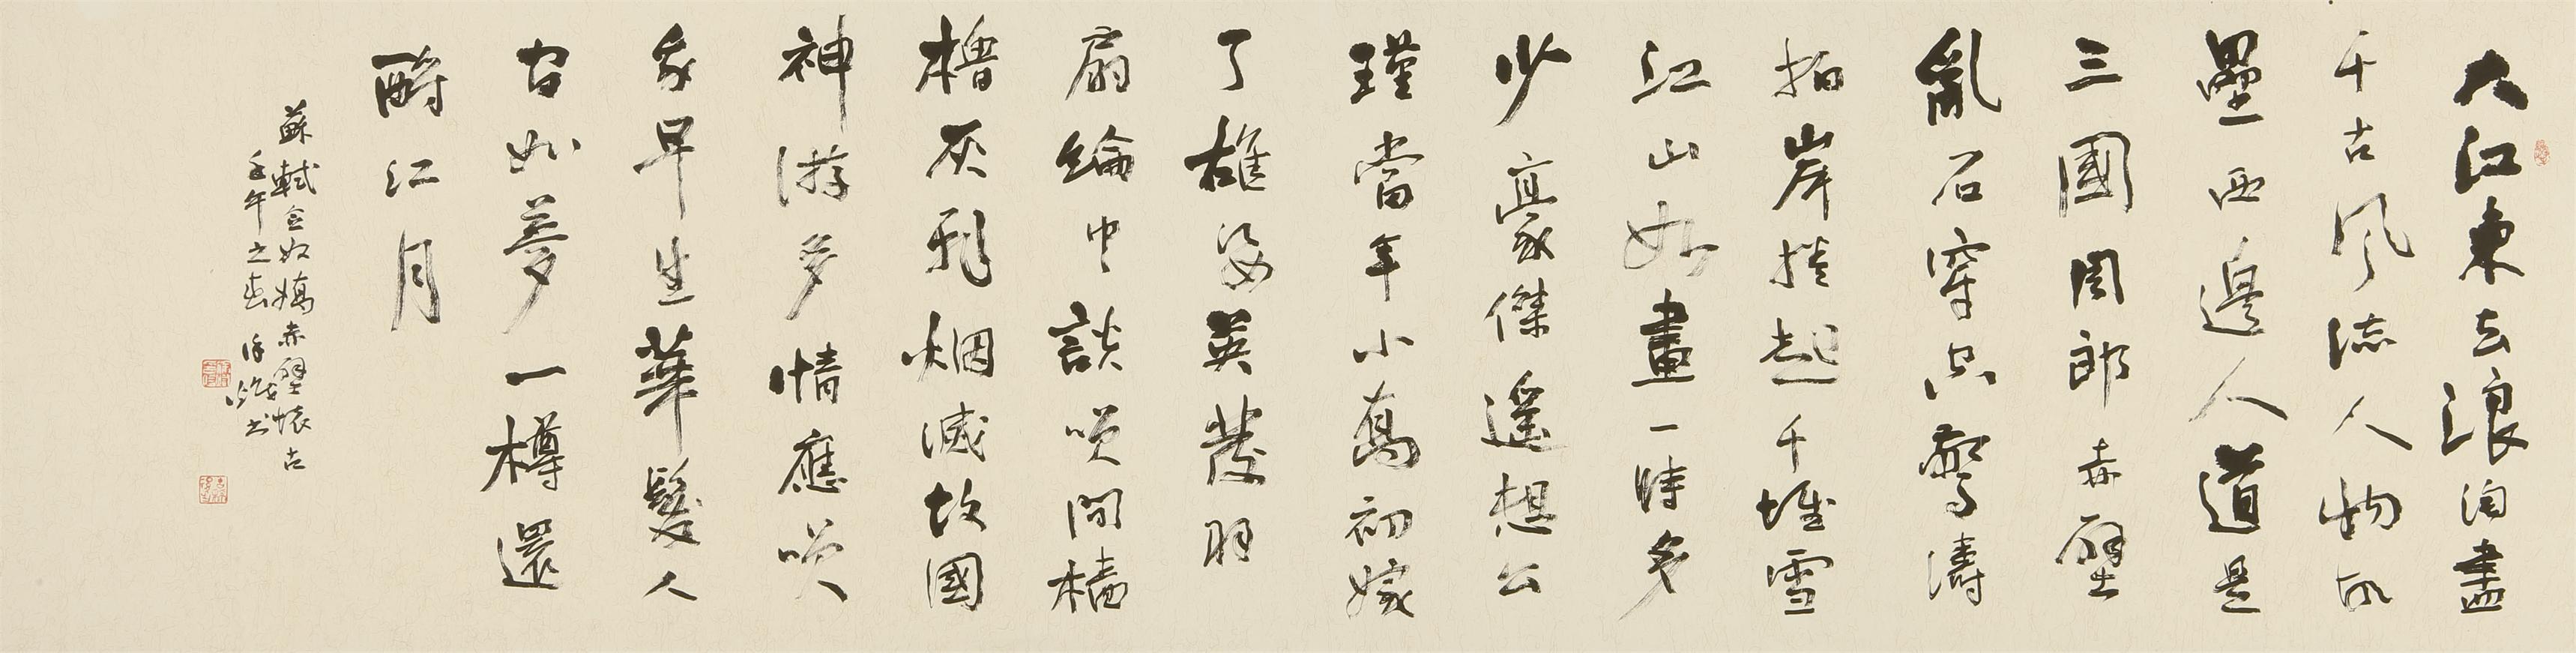 大江東去浪淘盡
千古風流人物故
壘西邊人道是
三國周郎赤壁
亂石穿空驚濤
拍岸捲起千堆雪
江山如畫一時多
少豪傑遙想公
瑾當年小喬初嫁
了雄姿英發羽
扇綸巾談笑間檣
櫓灰飛烟滅故國
神游多情應笑
我早生華髮人
間如夢一樽還
酹江月
蘇軾念奴嬌赤壁懷古
壬午之春 書